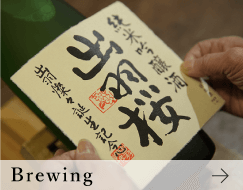 純米吟醸酒
出羽桜
出羽燦々誕生記念
Brewing